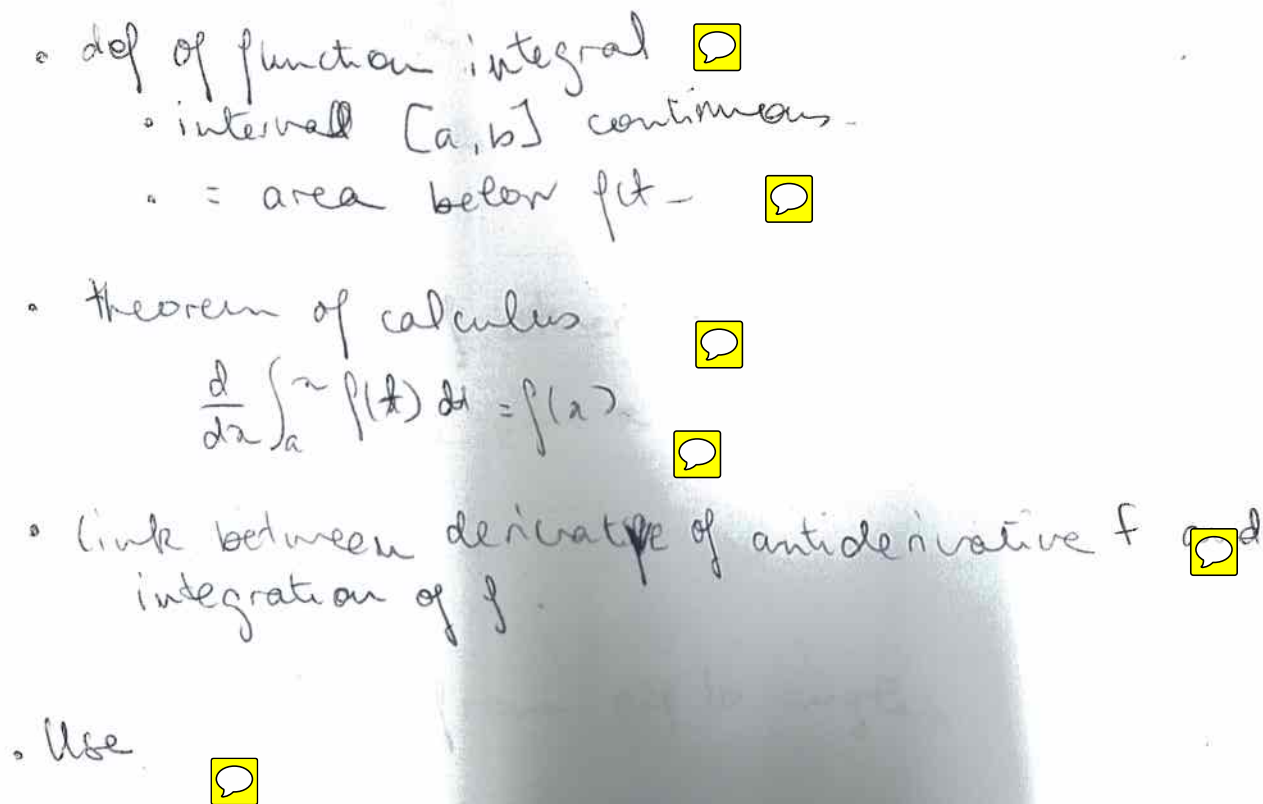 • def of function integral
• intervall [a,b] continuous
• = area below fct
• theorem of calculus
d/dx ∫_a^x f(t) dt = f(x)
• link between derivative of antiderivative F and
integration of f.
• Use